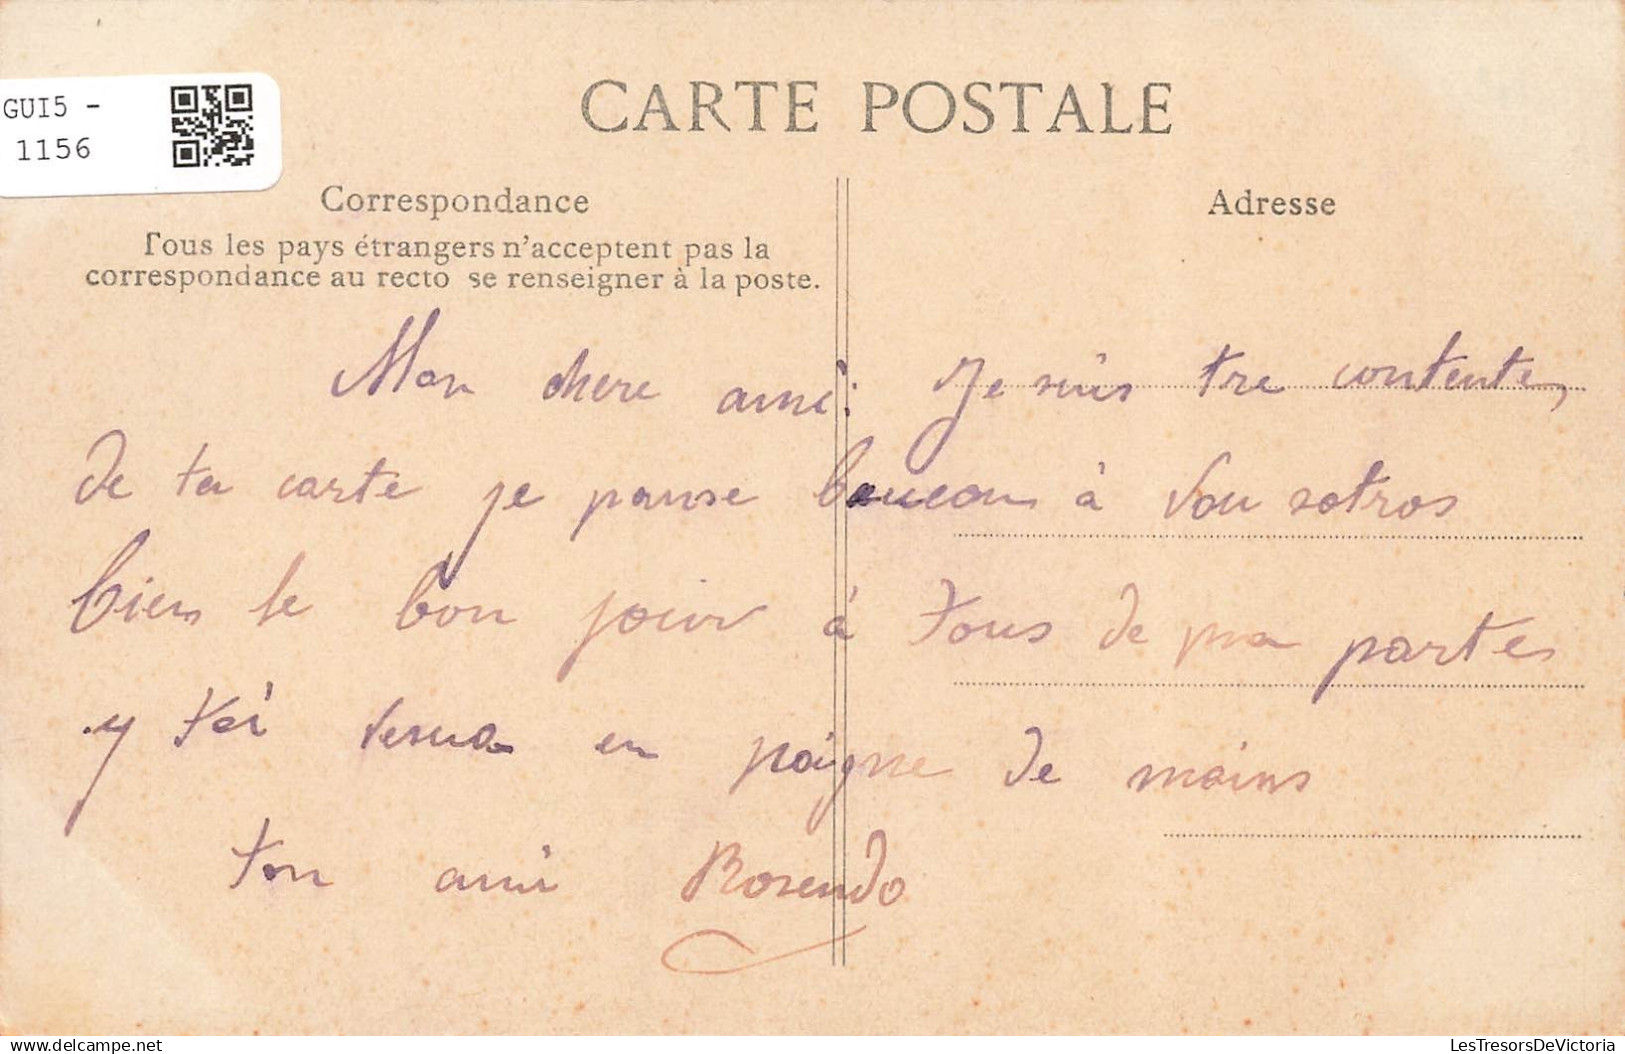 GUI5 -
1156
CARTE POSTALE
Correspondance
Tous les pays étrangers n'acceptent pas la
correspondance au recto se renseigner à la poste.
Adresse
Mon chere ami: Je suis tre contente,
de ta carte je panse à Vou sotros
bien le bon jour à tous de ma partes
y toi en poigne de mains
ton ami Rosendo
delcampe.net
LesTresorsDeVictoria